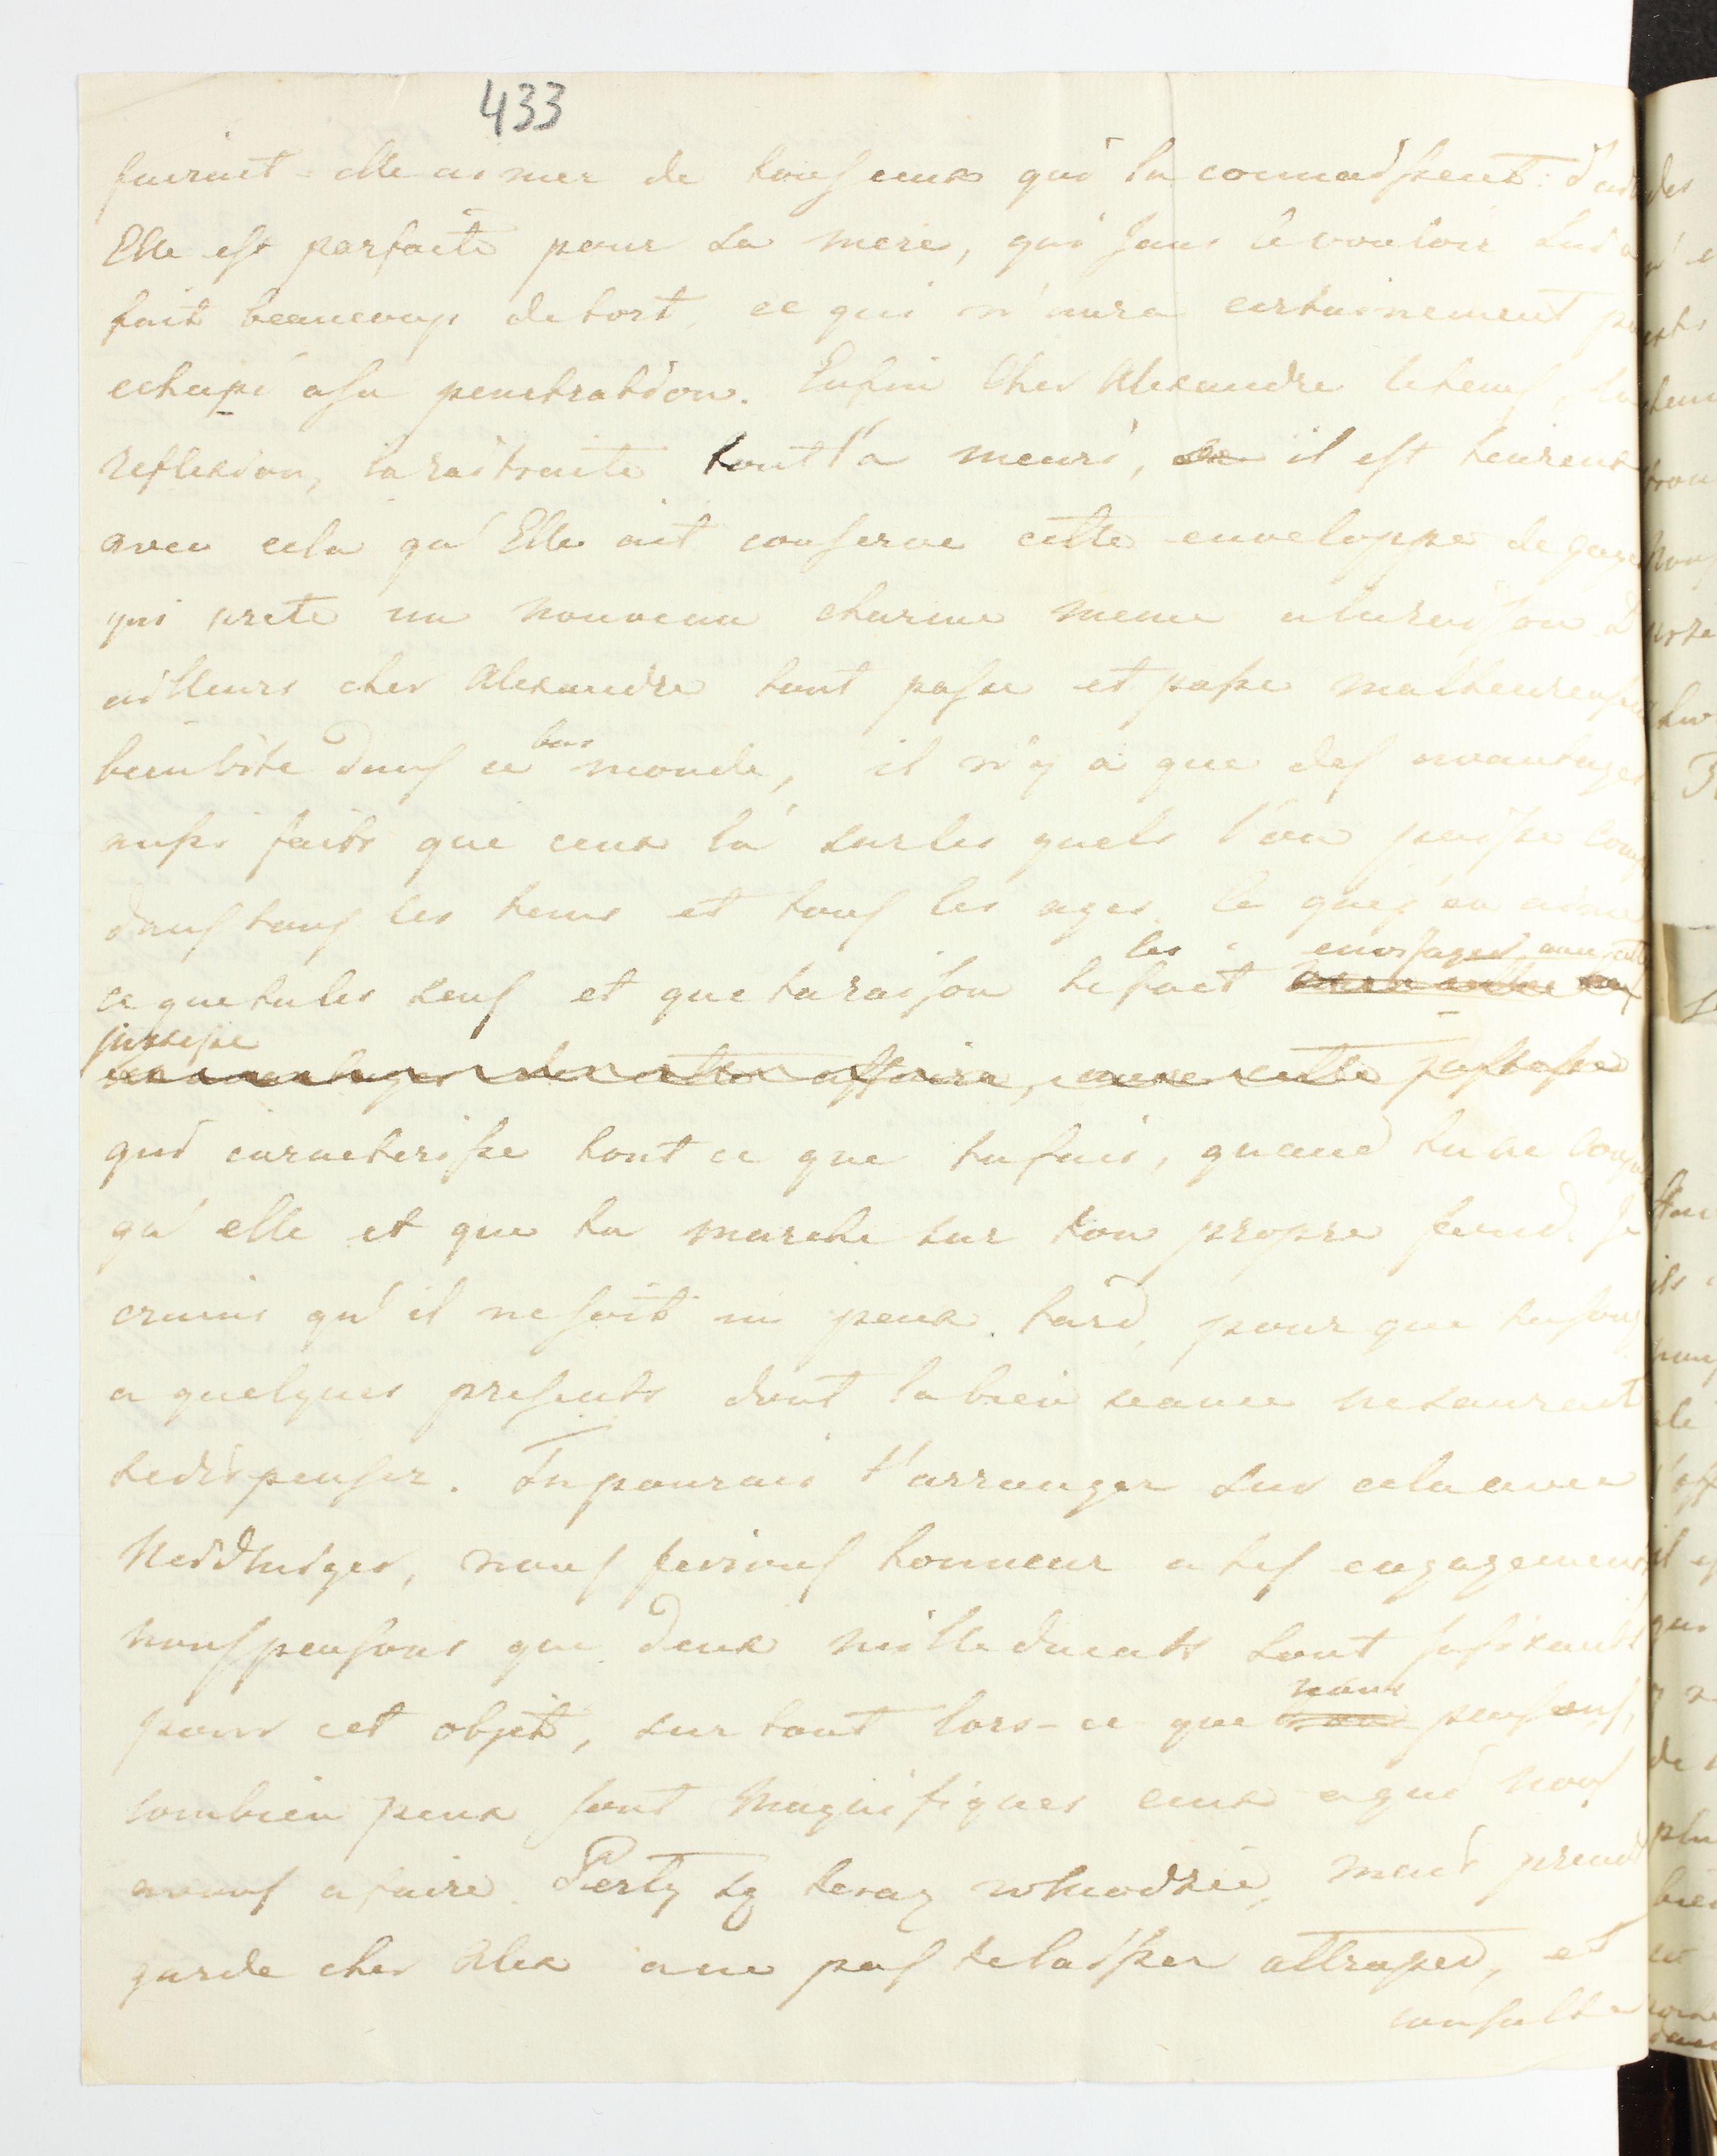 433
fairait-elle aimer de tous ceux qui la connaissent:
Elle est parfaite pour sa mere, qui sans le vouloir lui a
fait beaucoup de tort, ce qui n'aura certainement
echapé a sa penetration. Enfin Cher Alexandre le tems, la
reflexion, la raitraite tout l'a meuri, il est heureux
avec cela qu'Elle ait conserve cette enveloppe de gaze
qui prete un nouveau charme meme a la raison. D
ailleurs cher Alexandre tout passe et passe malheureuse
bien vite dans ce bas monde, il n'y a que des avantages
aussi faits que ceux la sur les quels l'on puisse
dans tous les tems et tous les ages. Ce que j'en aime
ce que tu les sens et que ta raison te fait les envisager avec cette
justesse
qui caracterise tout ce que tu fais, quand tu ne
qu'elle et que tu marche sur ton propre fond. Je
crains qu'il ne soit un peux tard, pour que tu
a quelques presents dont la bien seance ne saurait
te dispenser. Tu pourais t'arranger sur cela avec
nous ferions honneur a tes engagements
nous pensons que deux mille ducats sont sufisants
pour cet objet, sur tout lors-ce-que nous pensons,
combien peux sont magnifiques ceux a qui nous
avons a faire. mais prend
garde cher Alex a ne pas te laisser attraper, et
consulte